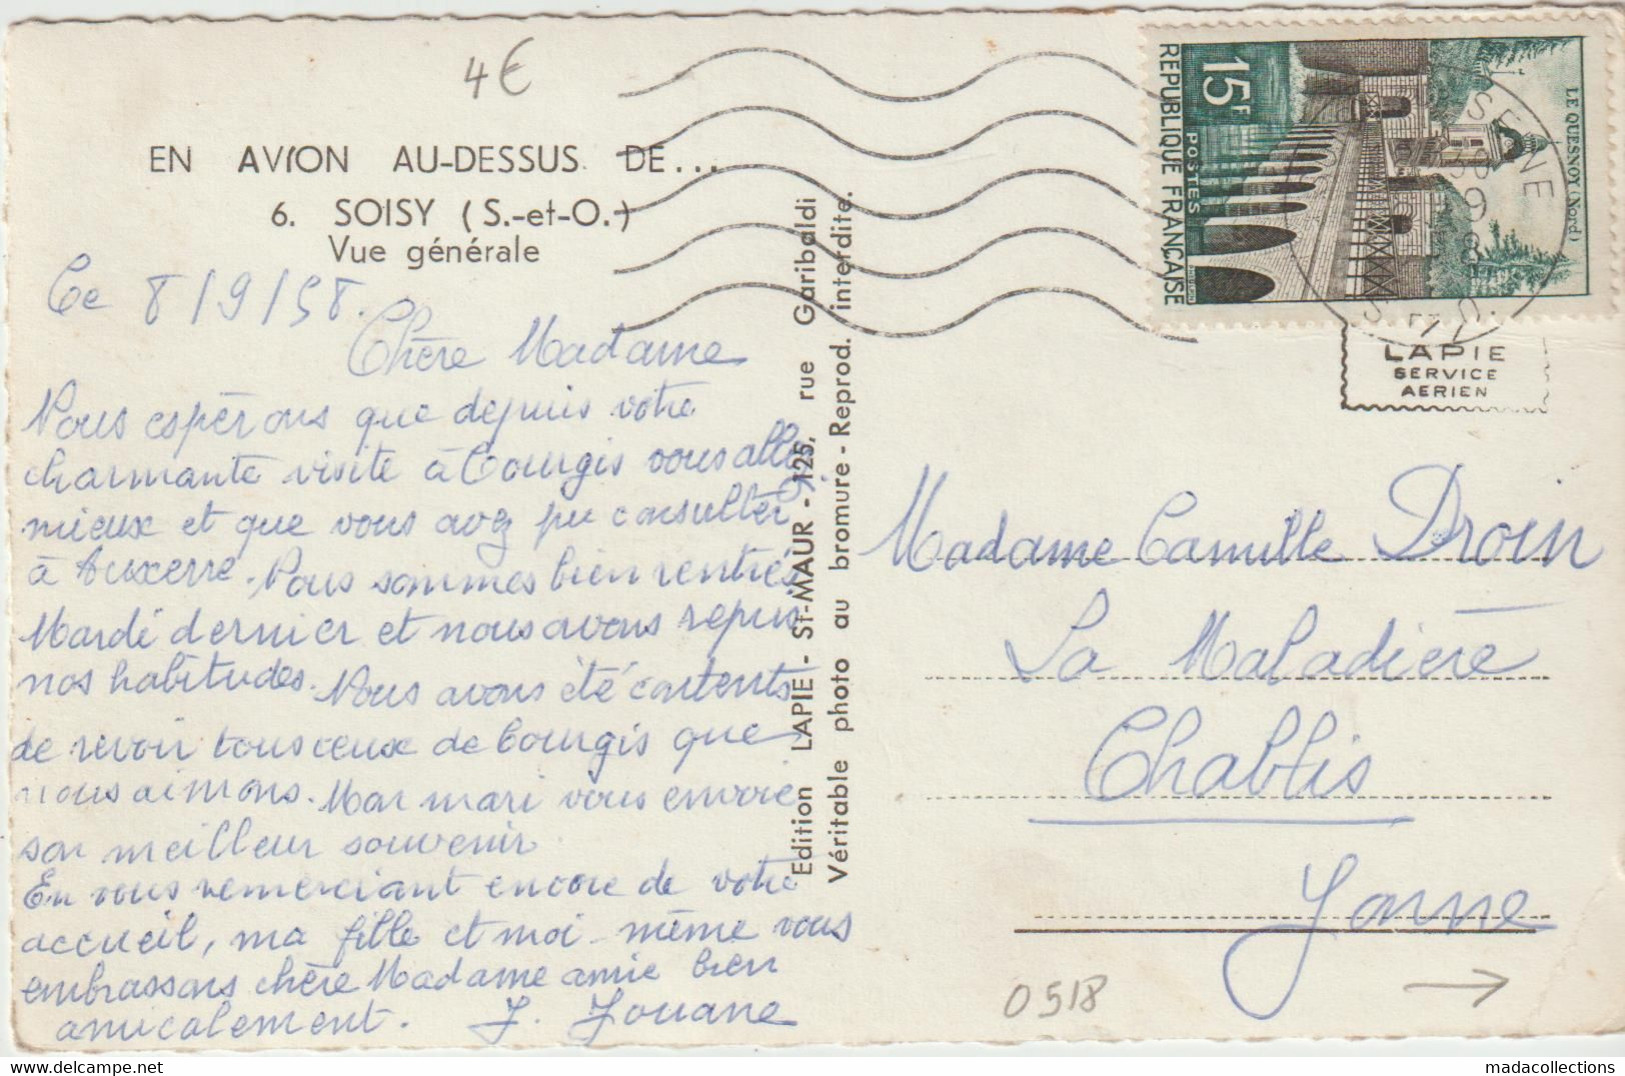 4€
EN AVION AU-DESSUS DE...
6. SOISY (S.-et-O.)
Vue générale
Ce 8/9/58.
Chère Madame
Nous espérons que depuis votre
charmante visite à Courgis vous allez
mieux et que vous avez pu consulter
à Auxerre. Nous sommes bien rentrés
Mardi dernier et nous avons repris
nos habitudes. Nous avons été contents
de revoir tous ceux de Courgis que
nous aimons. Mon mari vous envoie
son meilleur souvenir.
En vous remerciant encore de votre
accueil, ma fille et moi-même vous
embrassons chère Madame amie bien
amicalement. J. Jouane
Edition LAPIE - St-MAUR - 125, rue Garibaldi
Véritable photo au bromure - Reprod. interdite.
15F
POSTES
REPUBLIQUE FRANÇAISE
LE QUESNOY (Nord)
LAPIE
SERVICE
AERIEN
Madame Camille Droin
La Maladière
Chablis
Yonne
0518
madacollections